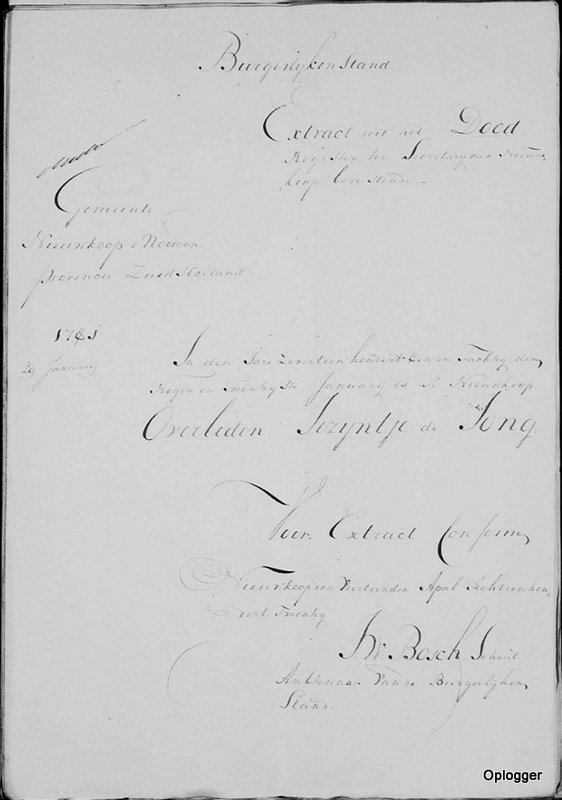 Burgerlyken Stand.
Extract uit het Dood
Register ter Secretary van Nieuw
koop berustende
Gemeente
Nieuwkoop & Noorden
provincie Zuid Holland.
1781
29 January
In den Jare Zeventien hondert Een en Tachtig den
Negen en Twentigste January is te Nieuwkoop
Overleden. Jozyntje de Jong.
Voor Extract Conform
Nieuwkoop den Veertienden April Achtienhon
dert Twentig
Bosch
Ambtenaar Van de Burgerlyken
Stand.
Oplogger